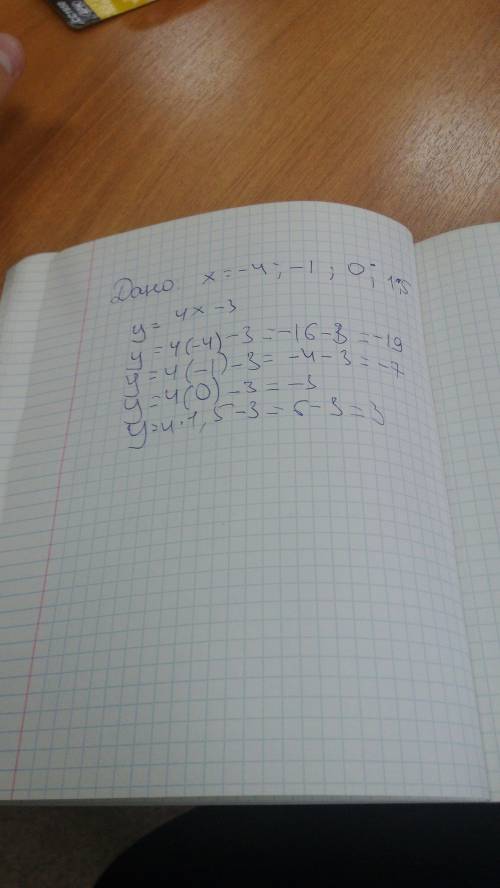 Дано x = -4; -1; 0; 1,5
y = 4x - 3
y = 4(-4) - 3 = -16 - 3 = -19
y = 4(-1) - 3 = -4 - 3 = -7
y = 4(0) - 3 = -3
y = 4·1,5 - 3 = 6 - 3 = 3